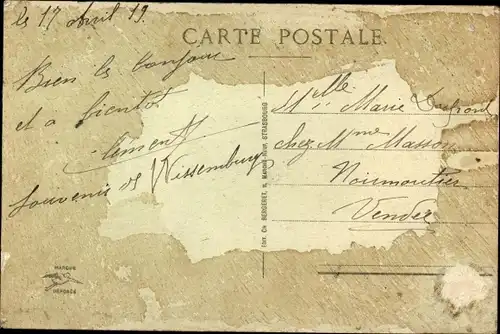 le 17 avril 19
CARTE POSTALE
Bien le bonjour
et a bientôt
Clement
Souvenir de Wissembourg
Mlle Marie
chez Mme Masson
Noirmoutier
Vendée
Imp. Ch. BERGERET, STRASBOURG
MARQUE
DÉPOSÉE